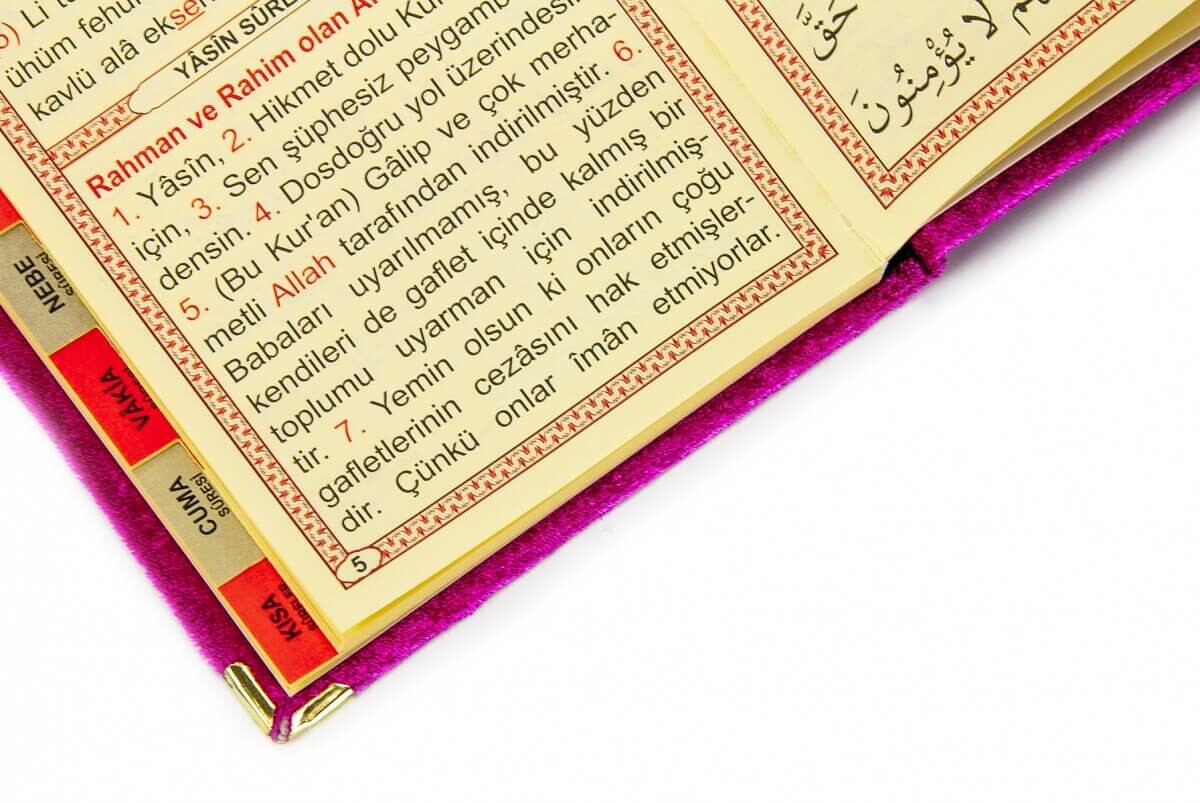 ) Li
ühüm
kavlü alâ ek
YÂSÎN
Rahman ve Rahim olan
1. Yâsîn, 2. Hikmet dolu
için, 3. Sen şüphesiz
densin. 4. Dosdoğru yol
5. (Bu Kur'an) Gâlip ve çok merha-
metli Allah tarafından indirilmiştir. 6.
Babaları uyarılmamış, bu yüzden
kendileri de gaflet içinde kalmış bir
toplumu uyarman için indirilmiş-
tir. 7. Yemin olsun ki onların çoğu
gafletlerinin cezâsını hak etmişler-
dir. Çünkü onlar îmân etmiyorlar.
5
حَقَّ
لَا يُؤْمِنُونَ
NEBE
SÛRESİ
VÂKİA
CUMA
SÛRESİ
KISA
SÛRELER